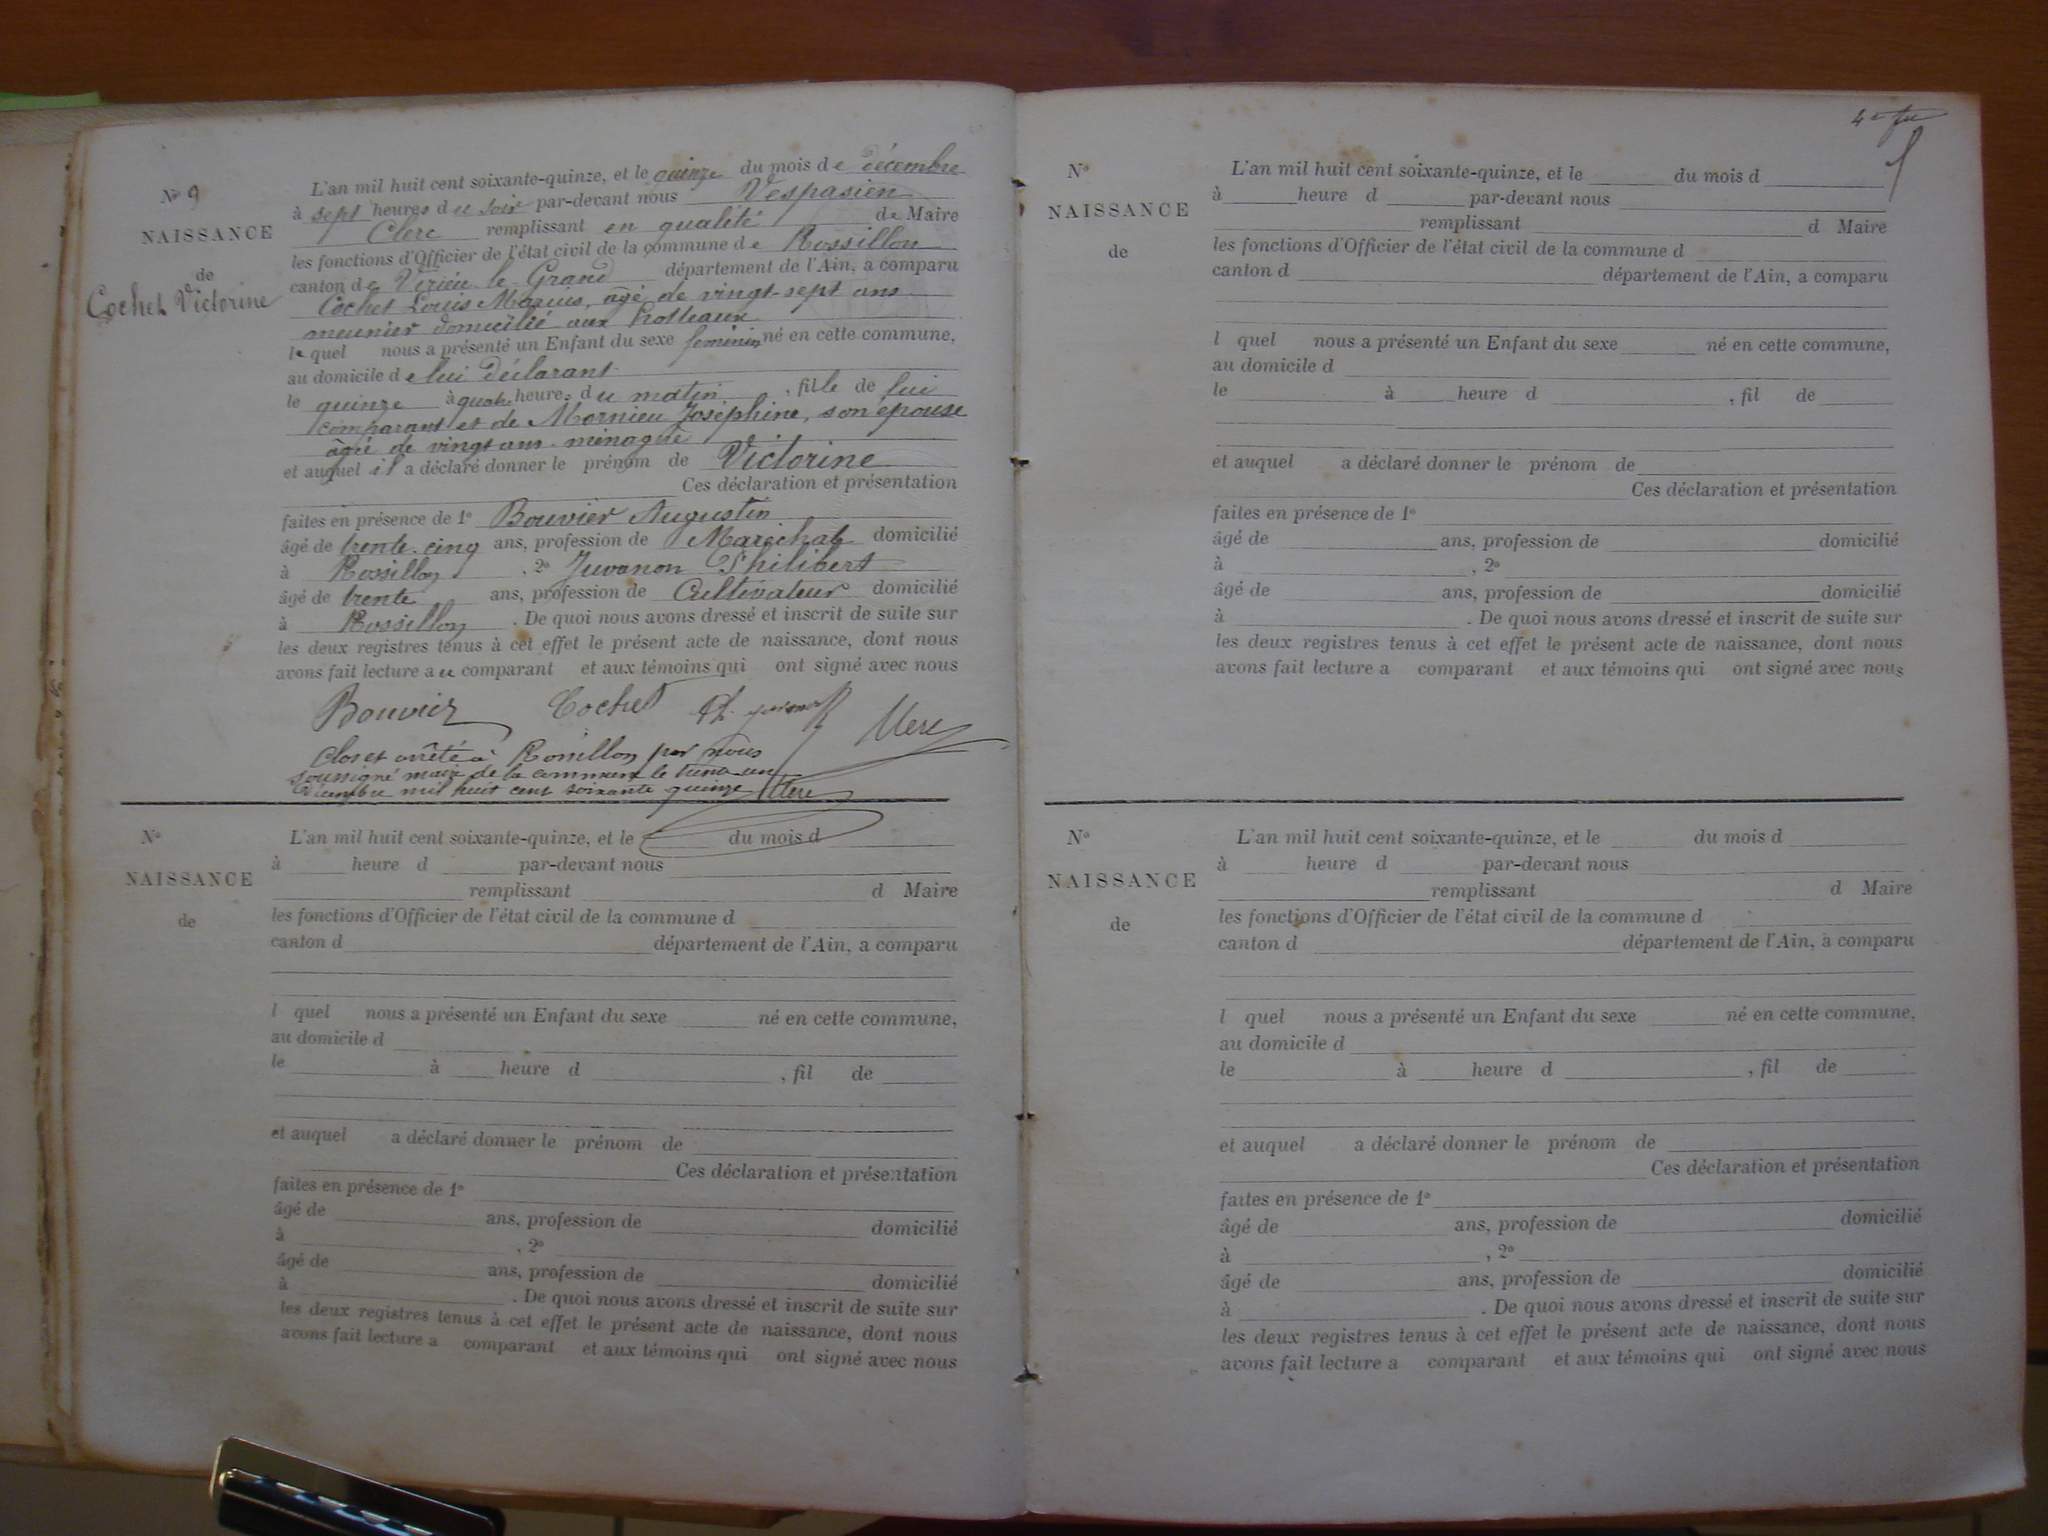 Nº 9
NAISSANCE
de
Cochet Victorine
L'an mil huit cent soixante-quinze, et le quinze du mois de décembre
à sept heures du soir par-devant nous Vespasien
Clerc remplissant en qualité de Maire
les fonctions d'Officier de l'état civil de la commune de Rossillon
canton de Virieu-le-Grand département de l'Ain, a comparu
Cochet Louis Marius, âgé de vingt-sept ans
meunier domicilié aux
lequel nous a présenté un Enfant du sexe féminin né en cette commune,
au domicile de lui déclarant
le quinze à quatre heures du matin, fille de lui
comparant et de Mornieu Joséphine, son épouse
âgée de vingt ans ménagère
et auquel il a déclaré donner le prénom de Victorine
Ces déclaration et présentation
faites en présence de 1º Bouvier Augustin
âgé de trente-cinq ans, profession de Maréchal domicilié
à Rossillon, 2º Juvanon Philibert
âgé de trente ans, profession de Cultivateur domicilié
à Rossillon. De quoi nous avons dressé et inscrit de suite sur
les deux registres tenus à cet effet le présent acte de naissance, dont nous
avons fait lecture au comparant et aux témoins qui ont signé avec nous
Bouvier Cochet Clerc
Clos et arrêté à Rossillon par nous
soussigné maire de la commune le trente-un
décembre mil huit cent soixante quinze Clerc
Nº
NAISSANCE
de
L'an mil huit cent soixante-quinze, et le du mois d
à heure d par-devant nous
remplissant d Maire
les fonctions d'Officier de l'état civil de la commune d
canton d département de l'Ain, a comparu
l quel nous a présenté un Enfant du sexe né en cette commune,
au domicile d
le à heure d , fil de
et auquel a déclaré donner le prénom de
Ces déclaration et présentation
faites en présence de 1º
âgé de ans, profession de domicilié
à , 2º
âgé de ans, profession de domicilié
à . De quoi nous avons dressé et inscrit de suite sur
les deux registres tenus à cet effet le présent acte de naissance, dont nous
avons fait lecture a comparant et aux témoins qui ont signé avec nous
Nº
NAISSANCE
de
L'an mil huit cent soixante-quinze, et le du mois d
à heure d par-devant nous
remplissant d Maire
les fonctions d'Officier de l'état civil de la commune d
canton d département de l'Ain, a comparu
l quel nous a présenté un Enfant du sexe né en cette commune,
au domicile d
le à heure d , fil de
et auquel a déclaré donner le prénom de
Ces déclaration et présentation
faites en présence de 1º
âgé de ans, profession de domicilié
à , 2º
âgé de ans, profession de domicilié
à . De quoi nous avons dressé et inscrit de suite sur
les deux registres tenus à cet effet le présent acte de naissance, dont nous
avons fait lecture a comparant et aux témoins qui ont signé avec nous
Nº
NAISSANCE
de
L'an mil huit cent soixante-quinze, et le du mois d
à heure d par-devant nous
remplissant d Maire
les fonctions d'Officier de l'état civil de la commune d
canton d département de l'Ain, a comparu
l quel nous a présenté un Enfant du sexe né en cette commune,
au domicile d
le à heure d , fil de
et auquel a déclaré donner le prénom de
Ces déclaration et présentation
faites en présence de 1º
âgé de ans, profession de domicilié
à , 2º
âgé de ans, profession de domicilié
à . De quoi nous avons dressé et inscrit de suite sur
les deux registres tenus à cet effet le présent acte de naissance, dont nous
avons fait lecture a comparant et aux témoins qui ont signé avec nous